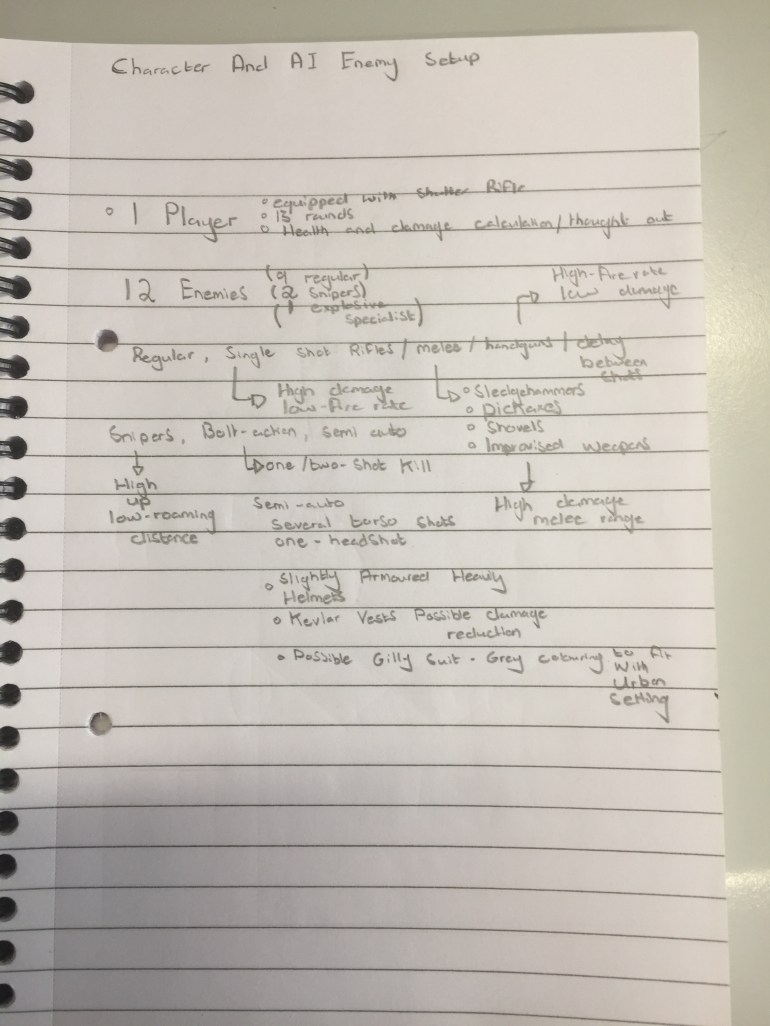 Character And AI Enemy Setup
• equipped with Shutter Rifle
• 1 Player • 13 rounds
• Health and damage calculation/thought out
12 Enemies (9 regular)
(2 Snipers)
(1 explosive
specialist)
High-fire rate
low damage
Regular, Single Shot Rifles / melee / handguns / delay
between
shots
High damage
low-fire rate
• Sledgehammers
• Pickaxes
• Shovels
• Improvised weapons
High damage
melee range
Snipers, Bolt-action, Semi auto
one/two-Shot Kill
High
up
low-roaming
distance
Semi-auto
Several torso Shots
one-headshot
• Slightly Armoured Heavily
Helmets
• Kevlar Vests Possible damage
reduction
• Possible Gilly Suit - Grey colouring to fit
with
Urban
Setting